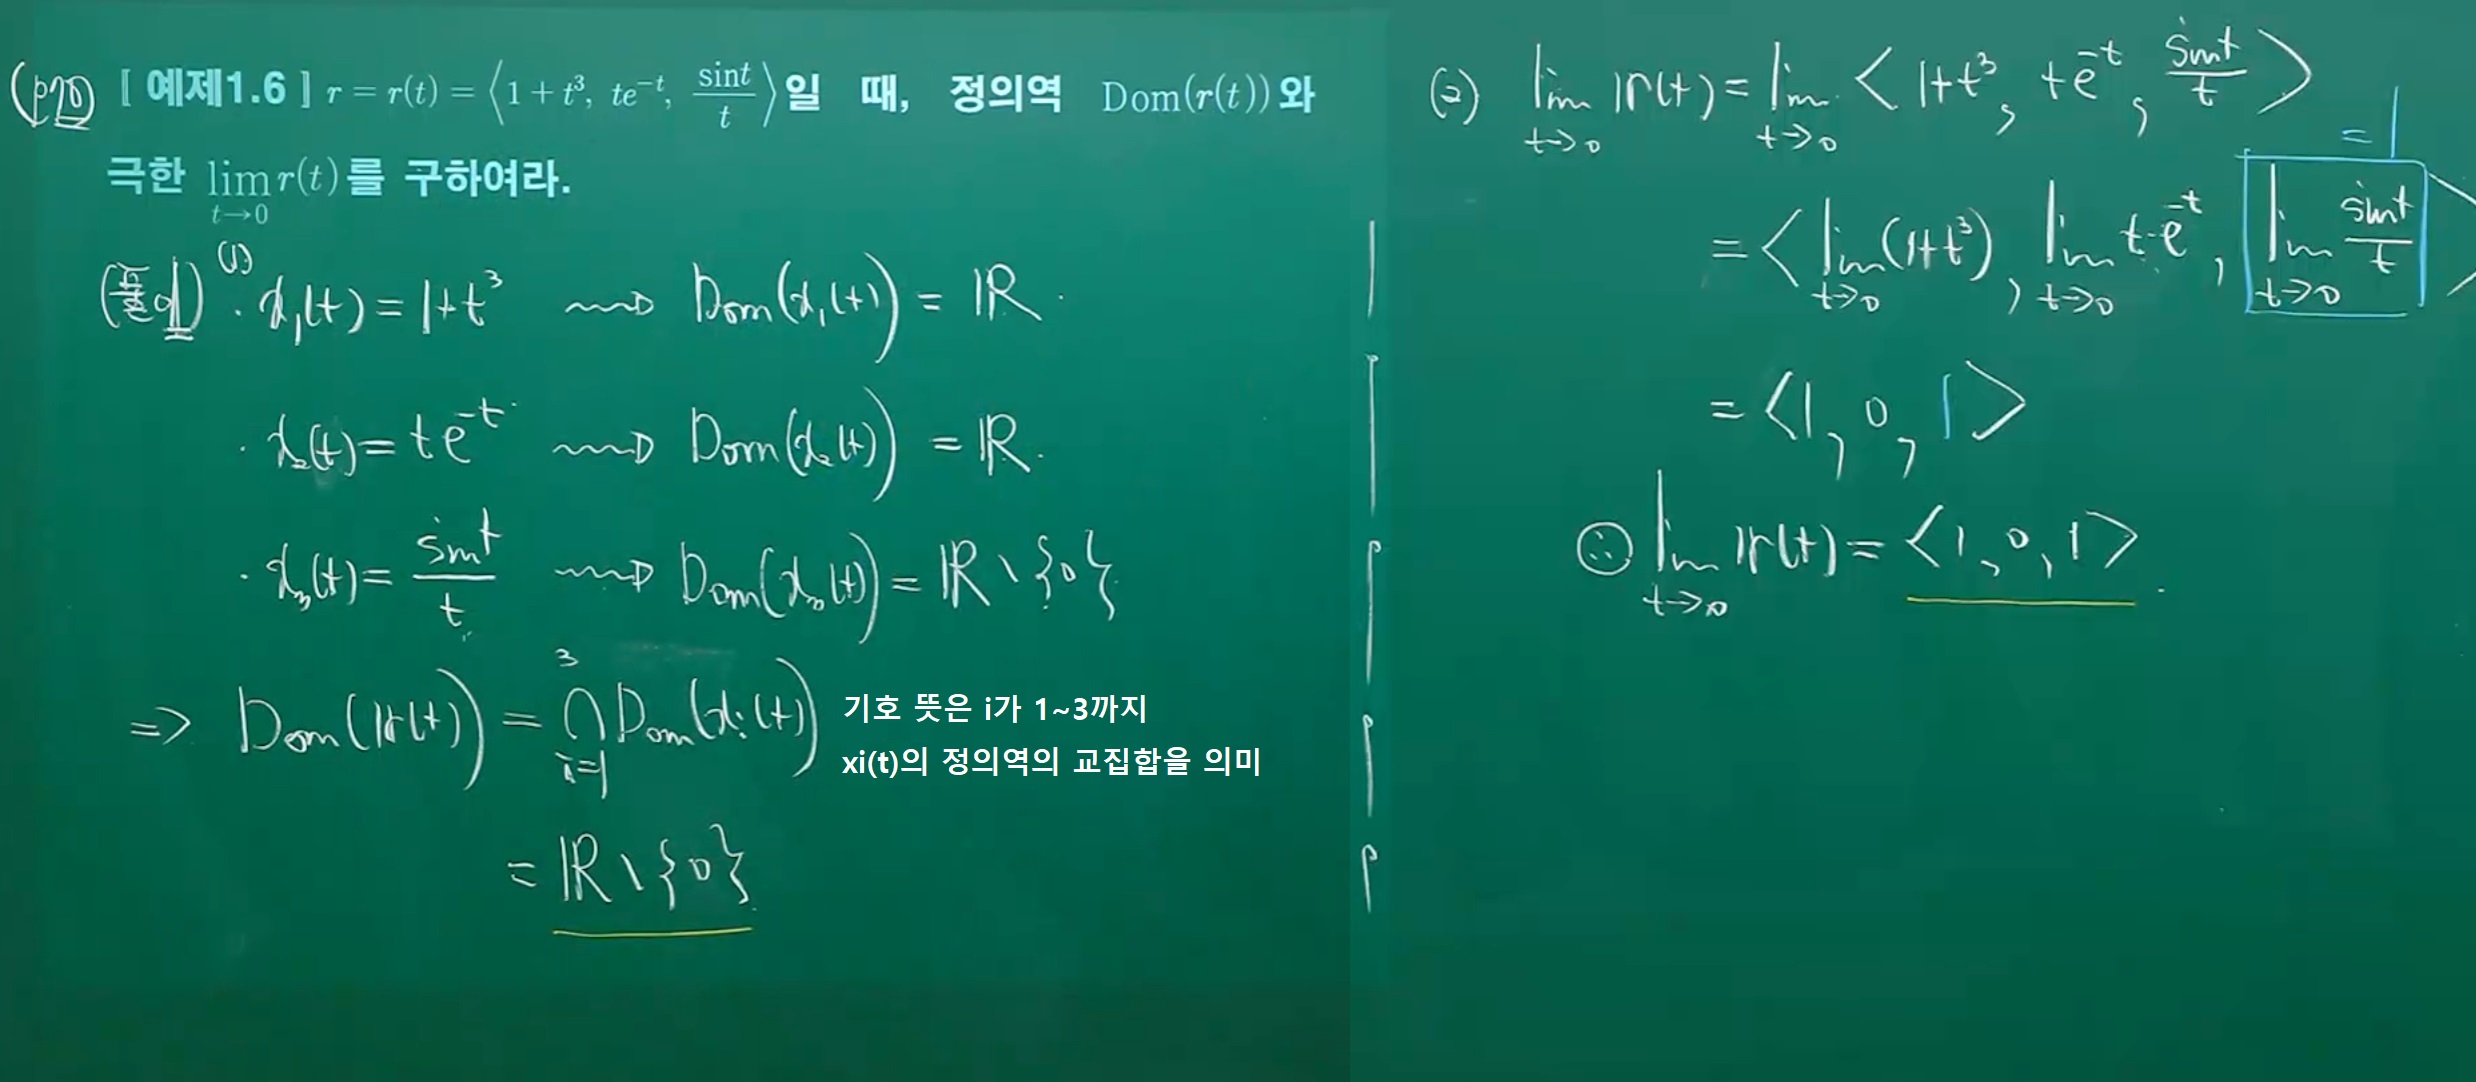 (p20) [ 예제1.6 ] r = r(t) = ⟨1 + t³, te⁻ᵗ, sint/t⟩일 때, 정의역 Dom(r(t))와
극한 lim_{t→0} r(t)를 구하여라.
(풀이) (1) · x₁(t) = 1+t³ ⟿ Dom(x₁(t)) = ℝ.
· x₂(t) = te⁻ᵗ ⟿ Dom(x₂(t)) = ℝ.
· x₃(t) = sint/t ⟿ Dom(x₃(t)) = ℝ \ {0}
=> Dom(r(t)) = ∩_{i=1}^{3} Dom(xᵢ(t))
기호 뜻은 i가 1~3까지
xi(t)의 정의역의 교집합을 의미
= ℝ \ {0}
(2) lim_{t→0} r(t) = lim_{t→0} < 1+t³, te⁻ᵗ, sint/t >
= < lim_{t→0} (1+t³), lim_{t→0} t·e⁻ᵗ, lim_{t→0} sint/t >
= 1
= <1, 0, 1>
∴ lim_{t→0} r(t) = <1, 0, 1>.